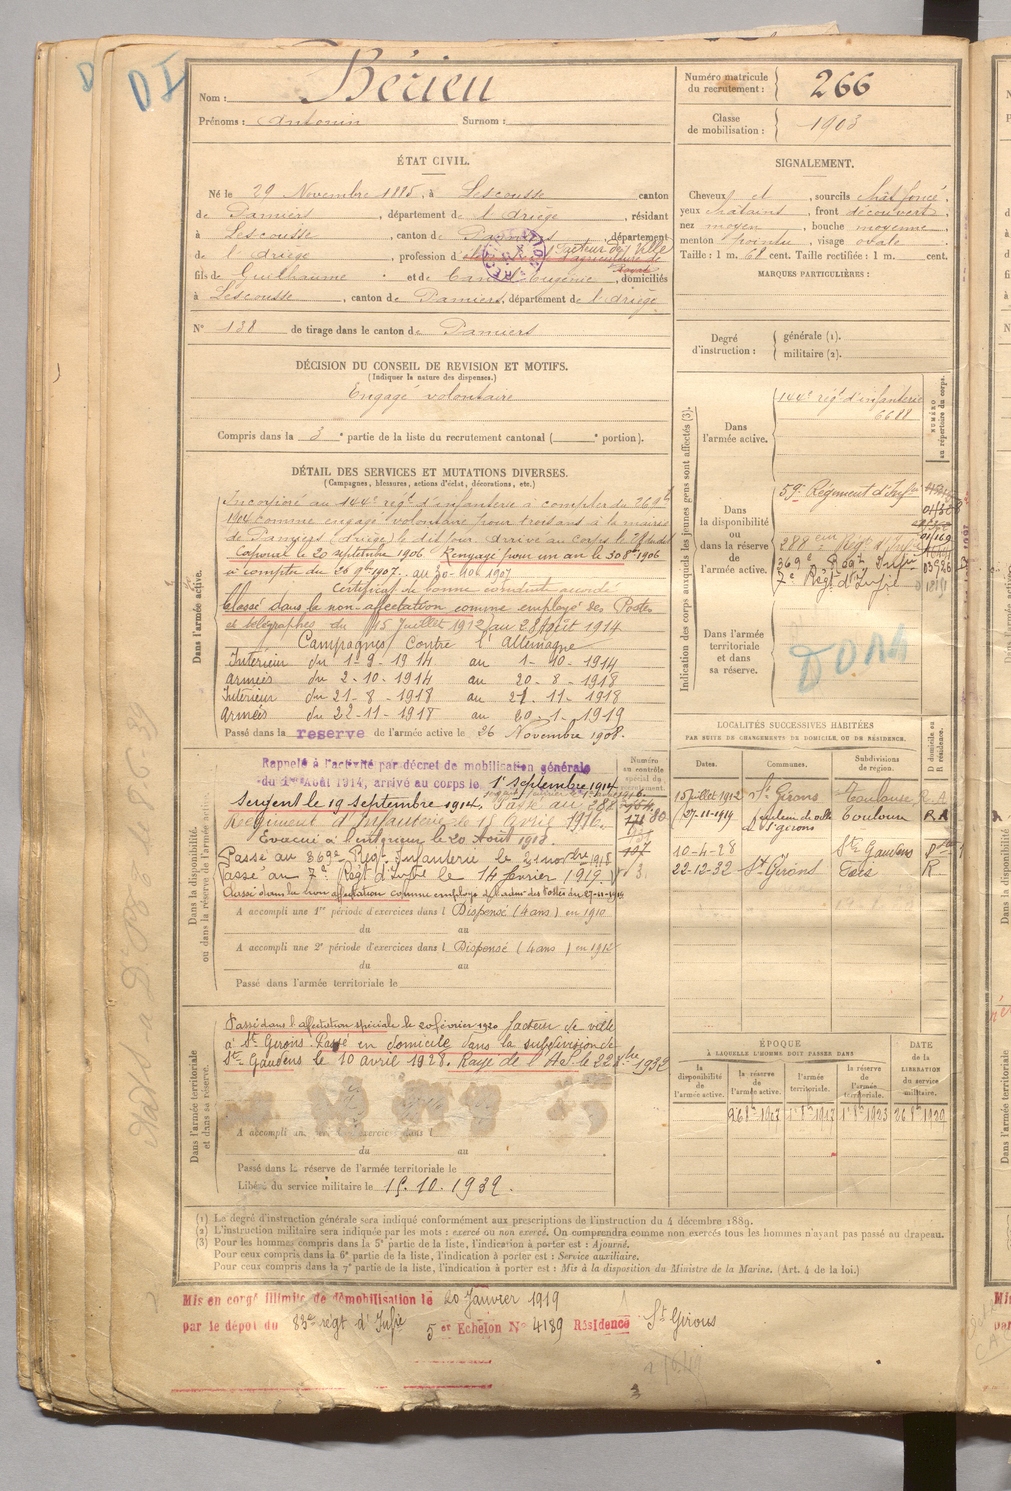 D I
Nom : Bérieu
Prénoms : Antonin Surnom :
Numéro matricule du recrutement : 266
Classe de mobilisation : 1903
ÉTAT CIVIL.
Né le 29 Novembre 1885, à Lescousse canton
de Pamiers, département de l'Ariège, résidant
à Lescousse, canton de Pamiers, département
de l'Ariège, profession d facteur de ville
fils de Guillaume et de Eugénie, domiciliés
à Lescousse, canton de Pamiers, département de l'Ariège
N° 138 de tirage dans le canton de Pamiers
DÉCISION DU CONSEIL DE REVISION ET MOTIFS.
(Indiquer la nature des dispenses.)
Engagé volontaire
Compris dans la 3e partie de la liste du recrutement cantonal ( e portion).
SIGNALEMENT.
Cheveux et, sourcils chât foncé,
yeux châtains, front découvert
nez moyen, bouche moyenne,
menton pointu, visage ovale
Taille : 1 m. 68 cent. Taille rectifiée : 1 m. cent.
MARQUES PARTICULIÈRES :
Degré d'instruction : générale (1).
militaire (2).
DÉTAIL DES SERVICES ET MUTATIONS DIVERSES.
(Campagnes, blessures, actions d'éclat, décorations, etc.)
Dans l'armée active.
Incorporé au 144e régt d'infanterie à compter du 26 9bre
1904 comme engagé volontaire pour trois ans à la mairie
de Pamiers (Ariège) le dit jour. Arrivé au corps le
Caporal le 20 septembre 1906 Rengagé pour un an le 30 8bre 1906
à compter du 26 9bre 1907.
Certificat de bonne conduite accordé
Classé dans la non-affectation comme employé des Postes
et télégraphes du 15 Juillet 1912 au 28 Août 1914
Campagnes contre l'Allemagne
Intérieur du 1-9-1914 au 1-10-1914
Armées du 2-10-1914 au 20-8-1918
Intérieur du 21-8-1918 au 21-11-1918
Armées du 22-11-1918 au 20-1-1919
Passé dans la reserve de l'armée active le 26 Novembre 1908.
Dans la disponibilité ou dans la réserve de l'armée active.
Rappelé à l'activité par décret de mobilisation générale
du 1er Août 1914, arrivé au corps le 1er septembre 1914
Sergent le 19 septembre 1914. Passé au 288e
Régiment d'Infanterie le 15 Avril 1916.
Evacué à l'intérieur le 20 Août 1918.
Passé au 369e Régt Infanterie le 21 novbre 1918
Passé au 7e Régt d'Infrie le 14 février 1919.
Classé dans la non affectation comme employé de l'adm des Postes du 27-11-1919
A accompli une 1re période d'exercices dans l Dispensé (4 ans) en 1910
du au
A accompli une 2e période d'exercices dans l Dispensé (4 ans) en 1912
du au
Passé dans l'armée territoriale le
Numéro au contrôle spécial du recrutement.
Dans l'armée territoriale et dans sa réserve.
Passé dans l'affectation spéciale le 20 février 1920 facteur de ville
à St Girons. Passé en domicile dans la subdivision de
St Gaudens le 10 avril 1928. Rayé de l'
A accompli
du au
Passé dans la réserve de l'armée territoriale le
Libéré du service militaire le 15.10.1932.
Indication des corps auxquels les jeunes gens sont affectés (3).
NUMÉRO au répertoire du corps.
Dans l'armée active.
144e régt d'infanterie
6688
Dans la disponibilité ou dans la réserve de l'armée active.
59e Régiment d'Infrie
288eme Régt d'Infrie
369e Régt Infrie
7e Régt d'Infrie
Dans l'armée territoriale et dans sa réserve.
LOCALITÉS SUCCESSIVES HABITÉES
PAR SUITE DE CHANGEMENTS DE DOMICILE OU DE RÉSIDENCE.
Dates. Communes. Subdivisions de région. D domicile ou R résidence.
15 juillet 1912 St Girons Toulouse R.A
27-11-1919 facteur de ville à St Girons Toulouse RA
10-4-28 St Gaudens
22-12-32 St Girons Foix R.
ÉPOQUE
À LAQUELLE L'HOMME DOIT PASSER DANS
DATE de la LIBÉRATION du service militaire.
la disponibilité de l'armée active. la réserve de l'armée active. l'armée territoriale. la réserve de l'armée territoriale.
(1) Le degré d'instruction générale sera indiqué conformément aux prescriptions de l'instruction du 4 décembre 1889.
(2) L'instruction militaire sera indiquée par les mots : exercé ou non exercé. On comprendra comme non exercés tous les hommes n'ayant pas passé au drapeau.
(3) Pour les hommes compris dans la 5e partie de la liste, l'indication à porter est : Ajourné.
Pour ceux compris dans la 6e partie de la liste, l'indication à porter est : Service auxiliaire.
Pour ceux compris dans la 7e partie de la liste, l'indication à porter est : Mis à la disposition du Ministre de la Marine. (Art. 4 de la loi.)
Mis en congé illimité de démobilisation le 20 Janvier 1919
par le dépôt du 83e régt d'Infie 5 et Echelon N° 4189 Résidence St Girons